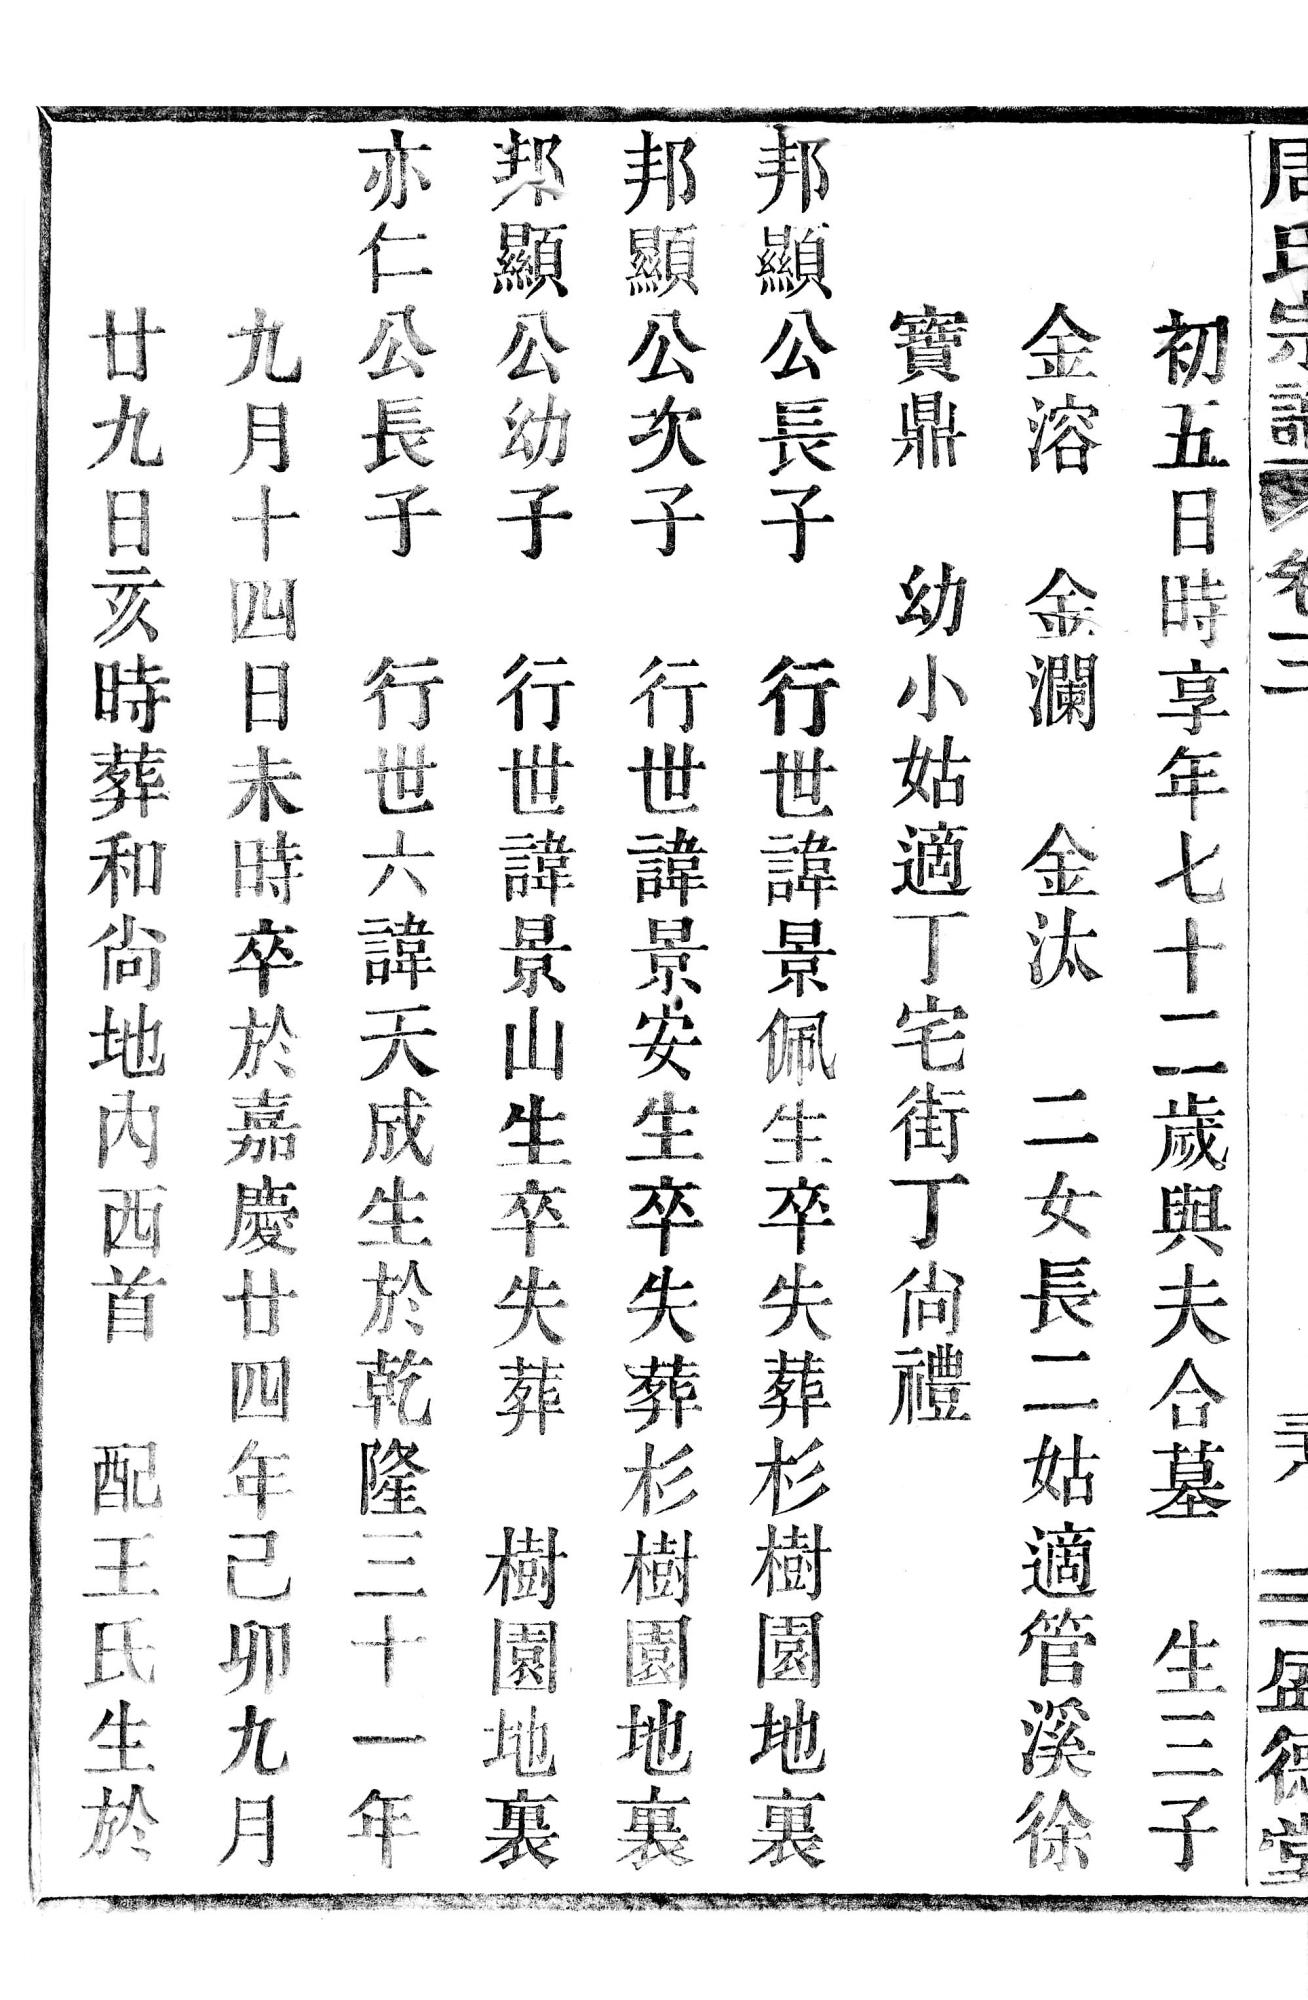 周氏宗譜 卷三 盛德堂
初五日時享年七十二歲與夫合墓 生三子
金溶 金瀾 金汰 二女長二姑適管溪徐
寶鼎 幼小姑適丁宅街丁尙禮
邦顯公長子 行世諱景佩生卒失葬杉樹園地裏
邦顯公次子 行世諱景安生卒失葬杉樹園地裏
邦顯公幼子 行世諱景山生卒失葬 樹園地裏
亦仁公長子 行世六諱天成生於乾隆三十一年
九月十四日未時卒於嘉慶廿四年己卯九月
廿九日亥時葬和尙地內西首 配王氏生於